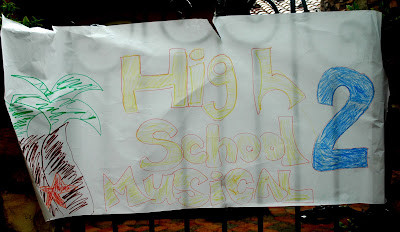 High
School 2
MUSICAL